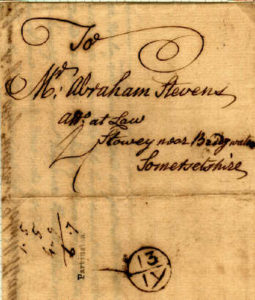 To
Mr. Abraham Stevens
Atto. at Law
Stowey near Bridgwater
Somersetshire
13
IV